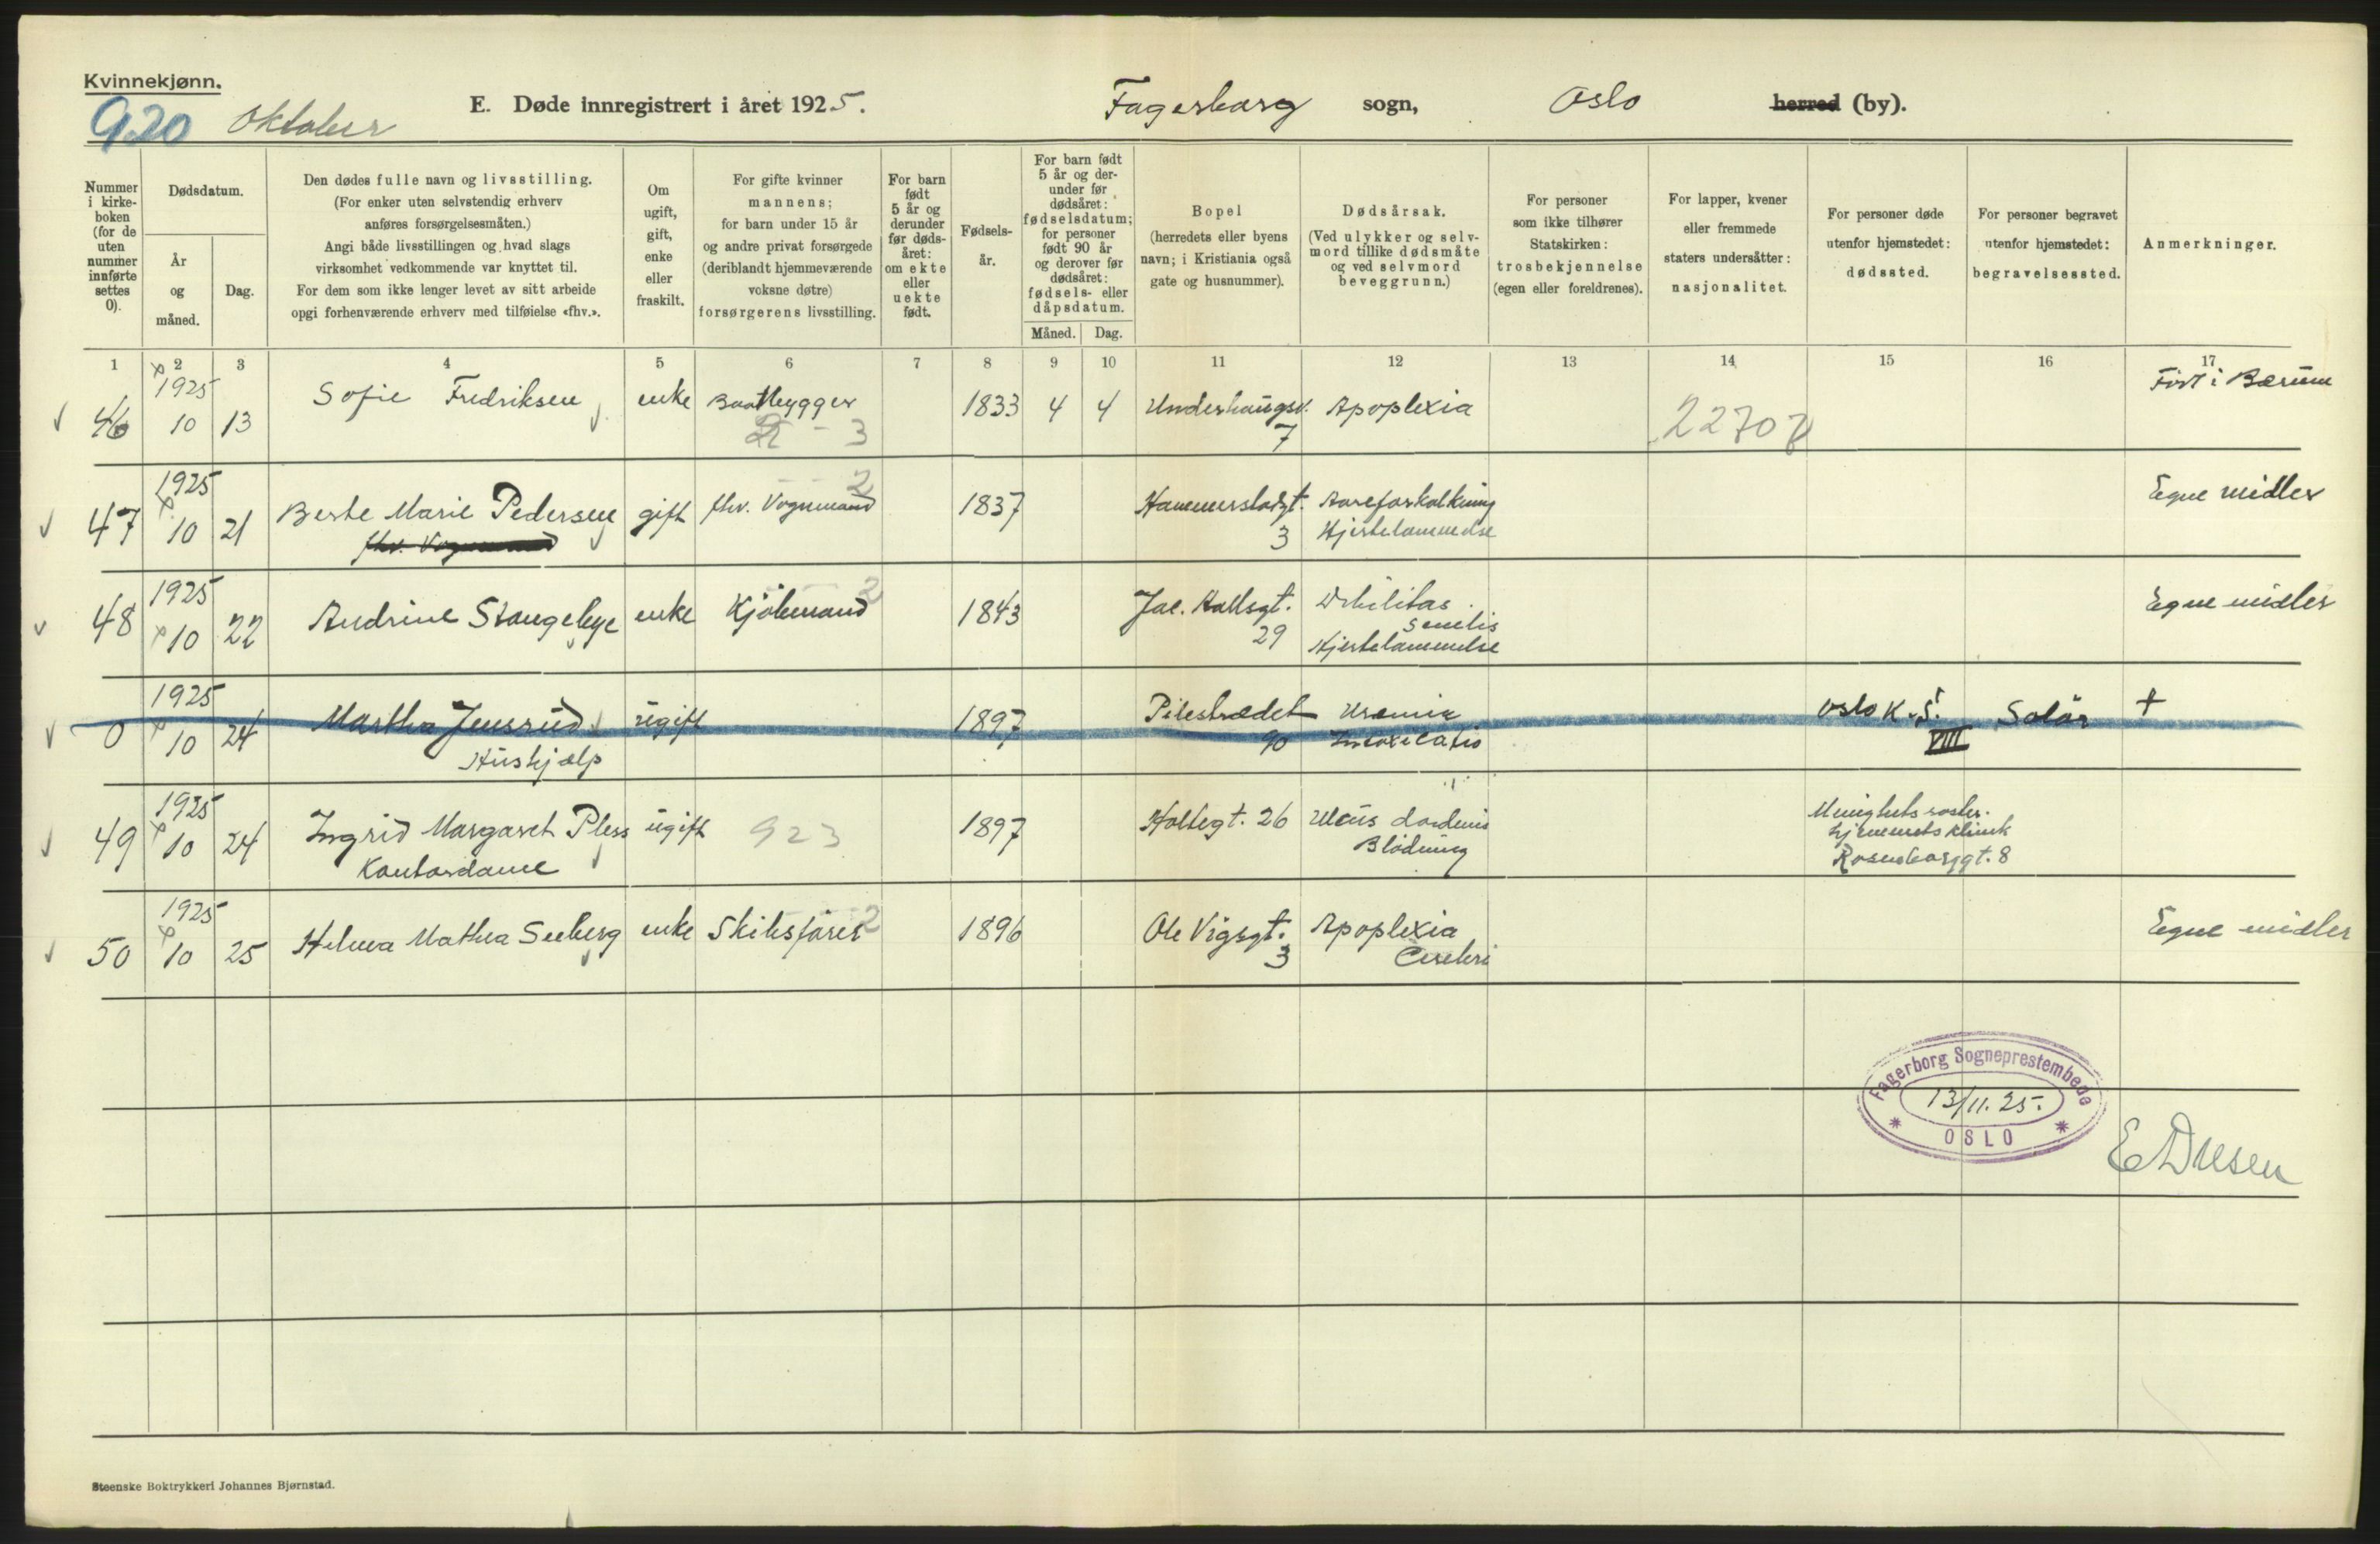 Kvinnekjønn.
920 Oktober
E. Døde innregistrert i året 1925.
Fagerborg sogn, Oslo herred (by).
Nummer i kirkeboken (for de uten nummer innførte settes 0).
Dødsdatum.
År og måned.
Dag.
Den dødes fulle navn og livsstilling.
(For enker uten selvstendig erhverv
anføres forsørgelsesmåten.)
Angi både livsstillingen og hvad slags
virksomhet vedkommende var knyttet til.
For dem som ikke lenger levet av sitt arbeide
opgi forhenværende erhverv med tilføielse «fhv.».
Om ugift, gift, enke eller fraskilt.
For gifte kvinner
mannens;
for barn under 15 år
og andre privat forsørgede
(deriblandt hjemmeværende
voksne døtre)
forsørgerens livsstilling.
For barn født 5 år og derunder før dødsåret: om ekte eller uekte født.
Fødselsår.
For barn født
5 år og derunder før
dødsåret:
fødselsdatum;
for personer
født 90 år
og derover før
dødsåret:
fødsels- eller
dåpsdatum.
Måned. Dag.
Bopel
(herredets eller byens
navn; i Kristiania også
gate og husnummer).
Dødsårsak.
(Ved ulykker og selvmord tillike dødsmåte
og ved selvmord
beveggrunn.)
For personer
som ikke tilhører
Statskirken:
trosbekjennelse
(egen eller foreldrenes).
For lapper, kvener
eller fremmede
staters undersåtter:
nasjonalitet.
For personer døde
utenfor hjemstedet:
dødssted.
For personer begravet
utenfor hjemstedet:
begravelsessted.
Anmerkninger.
1 2 3 4 5 6 7 8 9 10 11 12 13 14 15 16 17
46 1925 10 13 Sofie Fredriksen enke Baatbygger 3 1833 4 4 Underhaugsv. 7 Apoplexia 22707 Fôrt i Bærum
47 1925 10 21 Berte Marie Pedersen gift fhv. Vognmand 2 1837 Hammerstadgt. 3 Aareforkalkning
Hjertelammelse Egne midler
fhv. Vognmand
48 1925 10 22 Andrine Stangebye enke Kjölemand 2 1843 Jac. Hallsgt. 29 Debilitas
senilis
Hjertelammelse Egne midler
0 1925 10 24 Martha Jensrud ugift 1897 Pilestrædet 90 Uræmie
Intoxicatio Oslo K.S. VIII Solör +
Hushjælp
49 1925 10 24 Ingrid Margaret Pless ugift 923 1897 Holtegt. 26 Ulcus duodenis
Blödning Menighetssöster-
hjemmets klinik
Rosenborggt. 8
Kontordame
50 1925 10 25 Helma Mathea Seeberg enke Skibsförer 2 1896 Ole Vigsgt. 3 Apoplexia
Cerebri Egne midler
Fagerborg Sogneprestembede
13/11. 25.
* OSLO *
Steenske Boktrykkeri Johannes Bjørnstad.